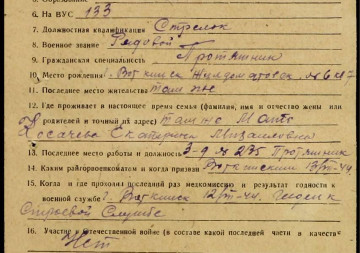 6. На ВУС 133
7. Должностная квалификация Стрелок
8. Военное звание Рядовой
9. Гражданская специальность
10. Место рождения г. Воткинск
11. Последнее место жительства там же
12. Где проживает в настоящее время семья (фамилия, имя и отчество жены или
родителей и точный их адрес) там же Мать
Косачева Екатерина Михайловна
13. Последнее место работы и должность 3-д № 235
14. Каким райгорвоенкоматом и когда призван Воткинским
15. Когда и где проходил последний раз медкомиссию и результат годности к
военной службе г. Воткинск Годен к
Строевой Службе
16. Участие в Отечественной войне (в составе какой последней части и качестве)
Нет